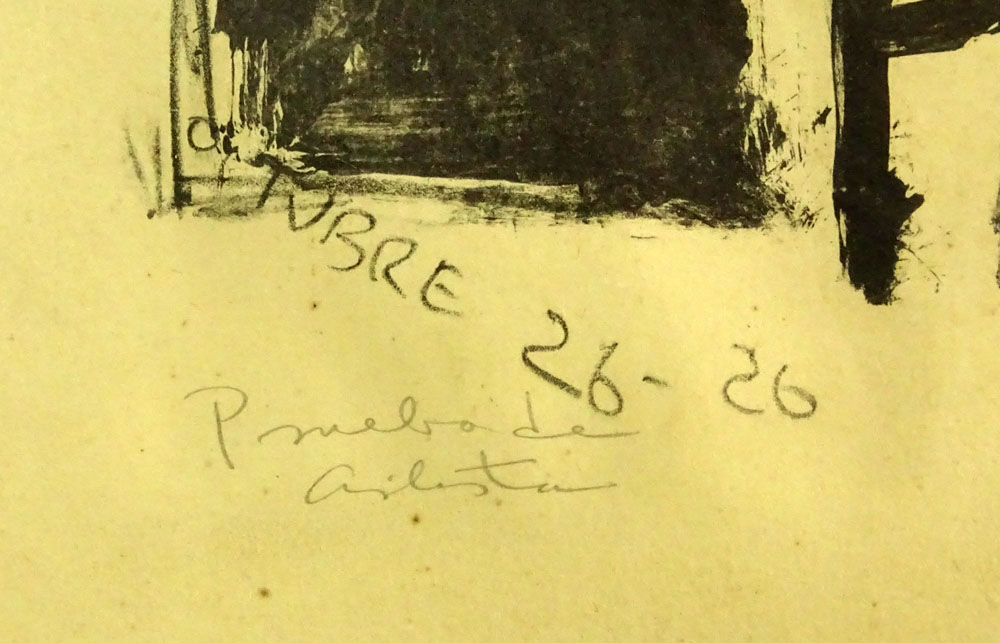 OCTUBRE 26 - 26
Prueba de
artista